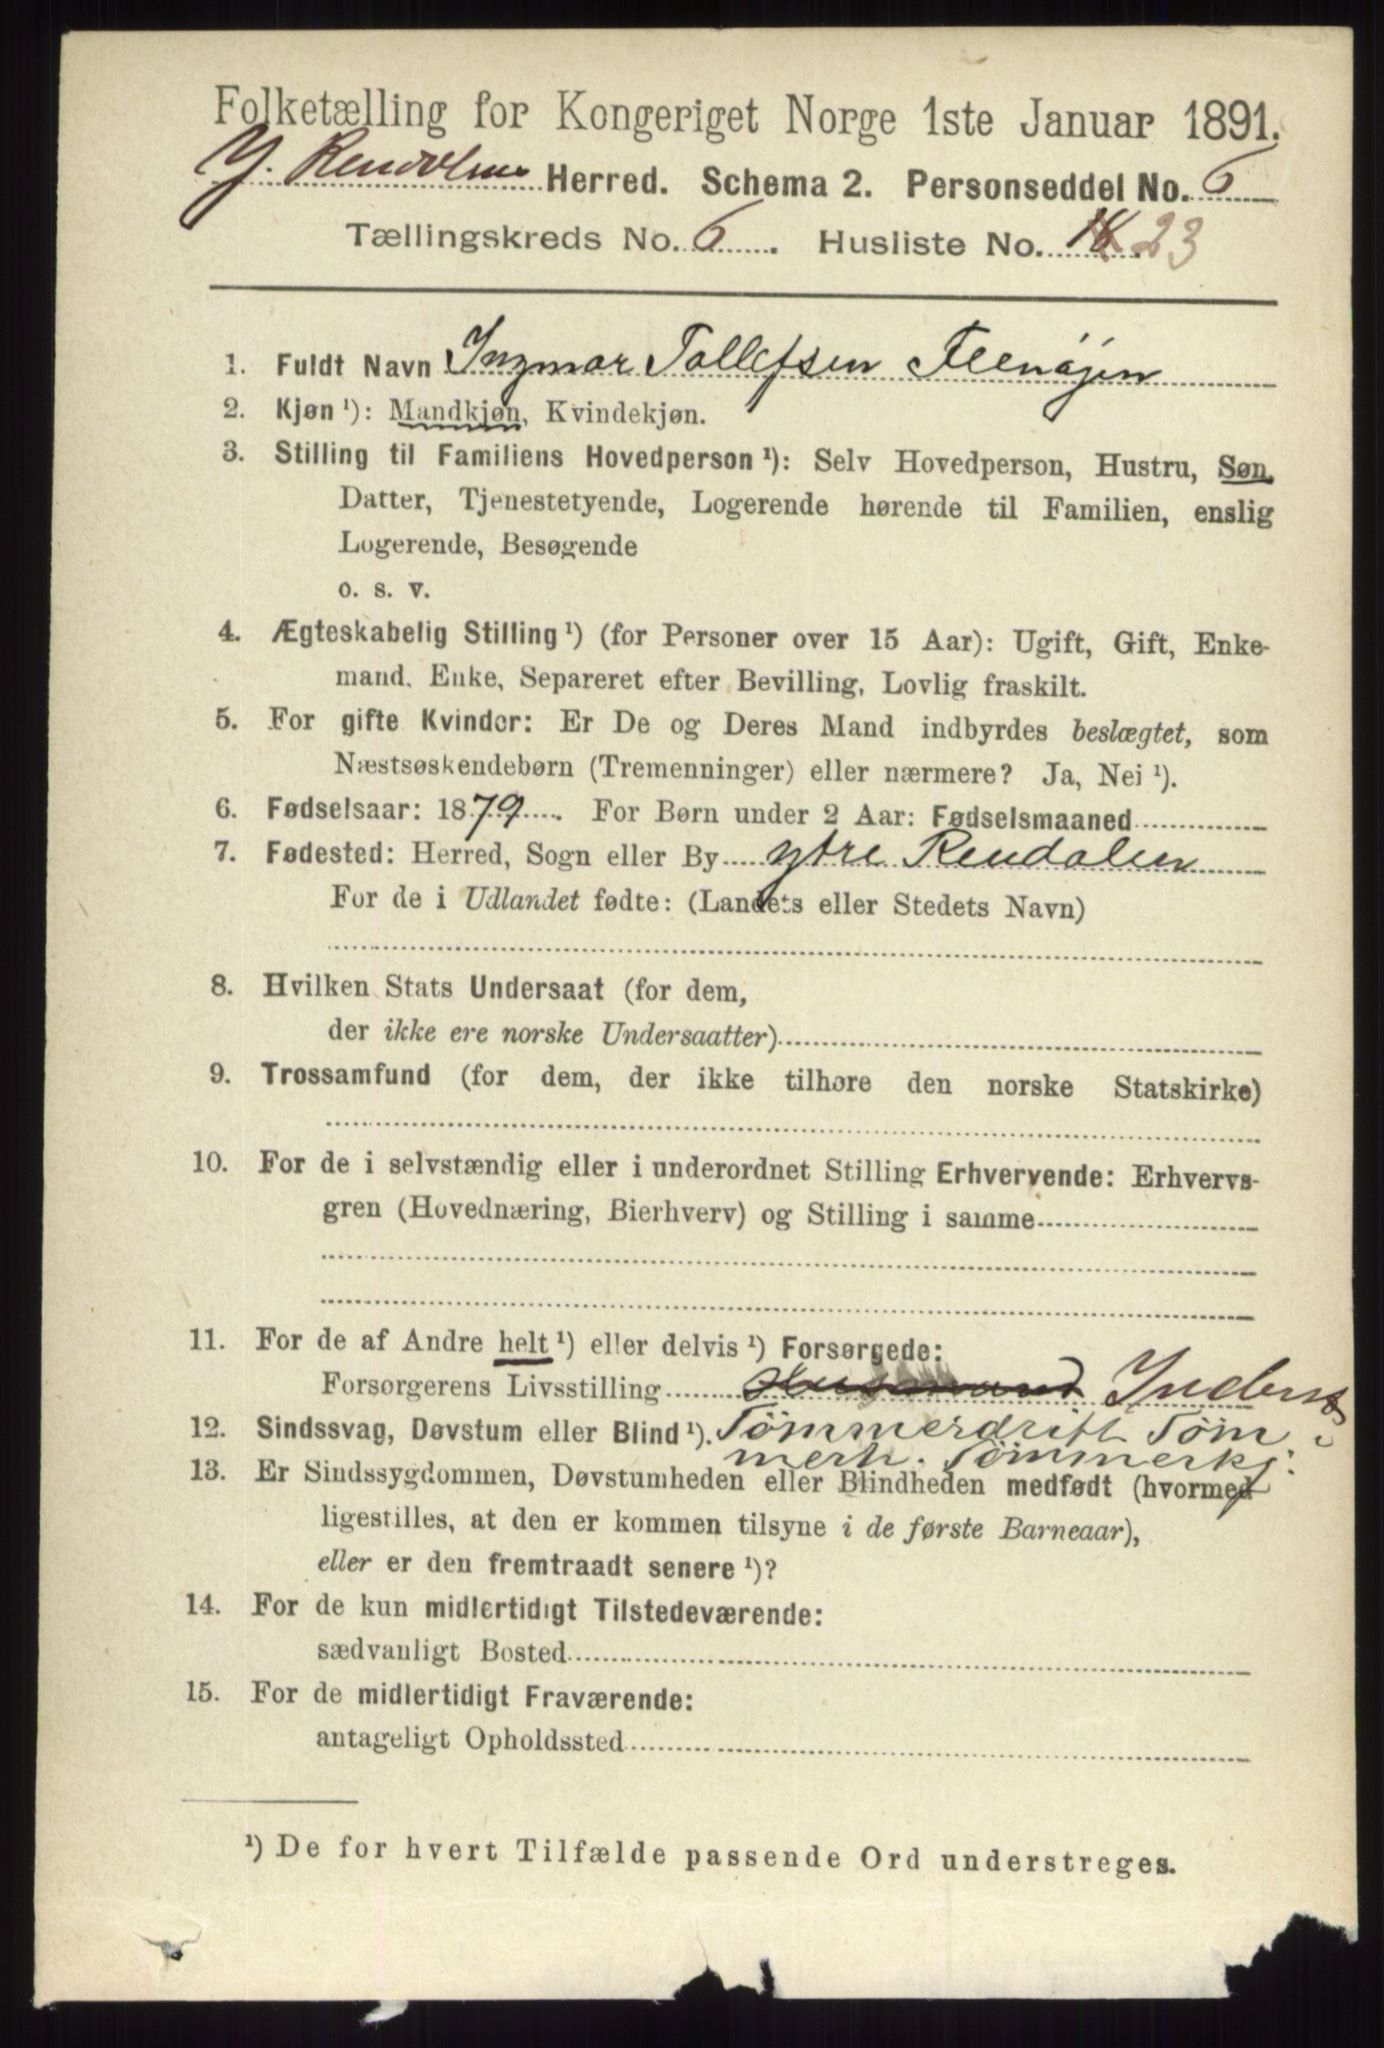 Folketælling for Kongeriget Norge 1ste Januar 1891.
Y. Rendalen Herred. Schema 2. Personseddel No. 6
Tællingskreds No. 6. Husliste No. 18. 23
1. Fuldt Navn Ingmar Tollefsen Flenøjen
2. Kjøn ¹): Mandkjøn, Kvindekjøn.
3. Stilling til Familiens Hovedperson ¹): Selv Hovedperson, Hustru, Søn,
Datter, Tjenestetyende, Logerende hørende til Familien, enslig
Logerende, Besøgende
o. s. v.
4. Ægteskabelig Stilling ¹) (for Personer over 15 Aar): Ugift, Gift, Enke-
mand, Enke, Separeret efter Bevilling, Lovlig fraskilt.
5. For gifte Kvinder: Er De og Deres Mand indbyrdes beslægtet, som
Næstsøskendebørn (Tremenninger) eller nærmere? Ja, Nei ¹).
6. Fødselsaar: 1879. For Børn under 2 Aar: Fødselsmaaned
7. Fødested: Herred, Sogn eller By ytre Rendalen
For de i Udlandet fødte: (Landets eller Stedets Navn)
8. Hvilken Stats Undersaat (for dem,
der ikke ere norske Undersaatter)
9. Trossamfund (for dem, der ikke tilhøre den norske Statskirke)
10. For de i selvstændig eller i underordnet Stilling Erhvervende: Erhvervs-
gren (Hovednæring, Bierhverv) og Stilling i samme
11. For de af Andre helt ¹) eller delvis ¹) Forsørgede:
Forsørgerens Livsstilling Husmand Inderst
12. Sindssvag, Døvstum eller Blind ¹). Tømmerdrift Tøm-
merh. Tømmerkj.
13. Er Sindssygdommen, Døvstumheden eller Blindheden medfødt (hvormed
ligestilles, at den er kommen tilsyne i de første Barneaar),
eller er den fremtraadt senere ¹)?
14. For de kun midlertidigt Tilstedeværende:
sædvanligt Bosted
15. For de midlertidigt Fraværende:
antageligt Opholdssted
¹) De for hvert Tilfælde passende Ord understreges.